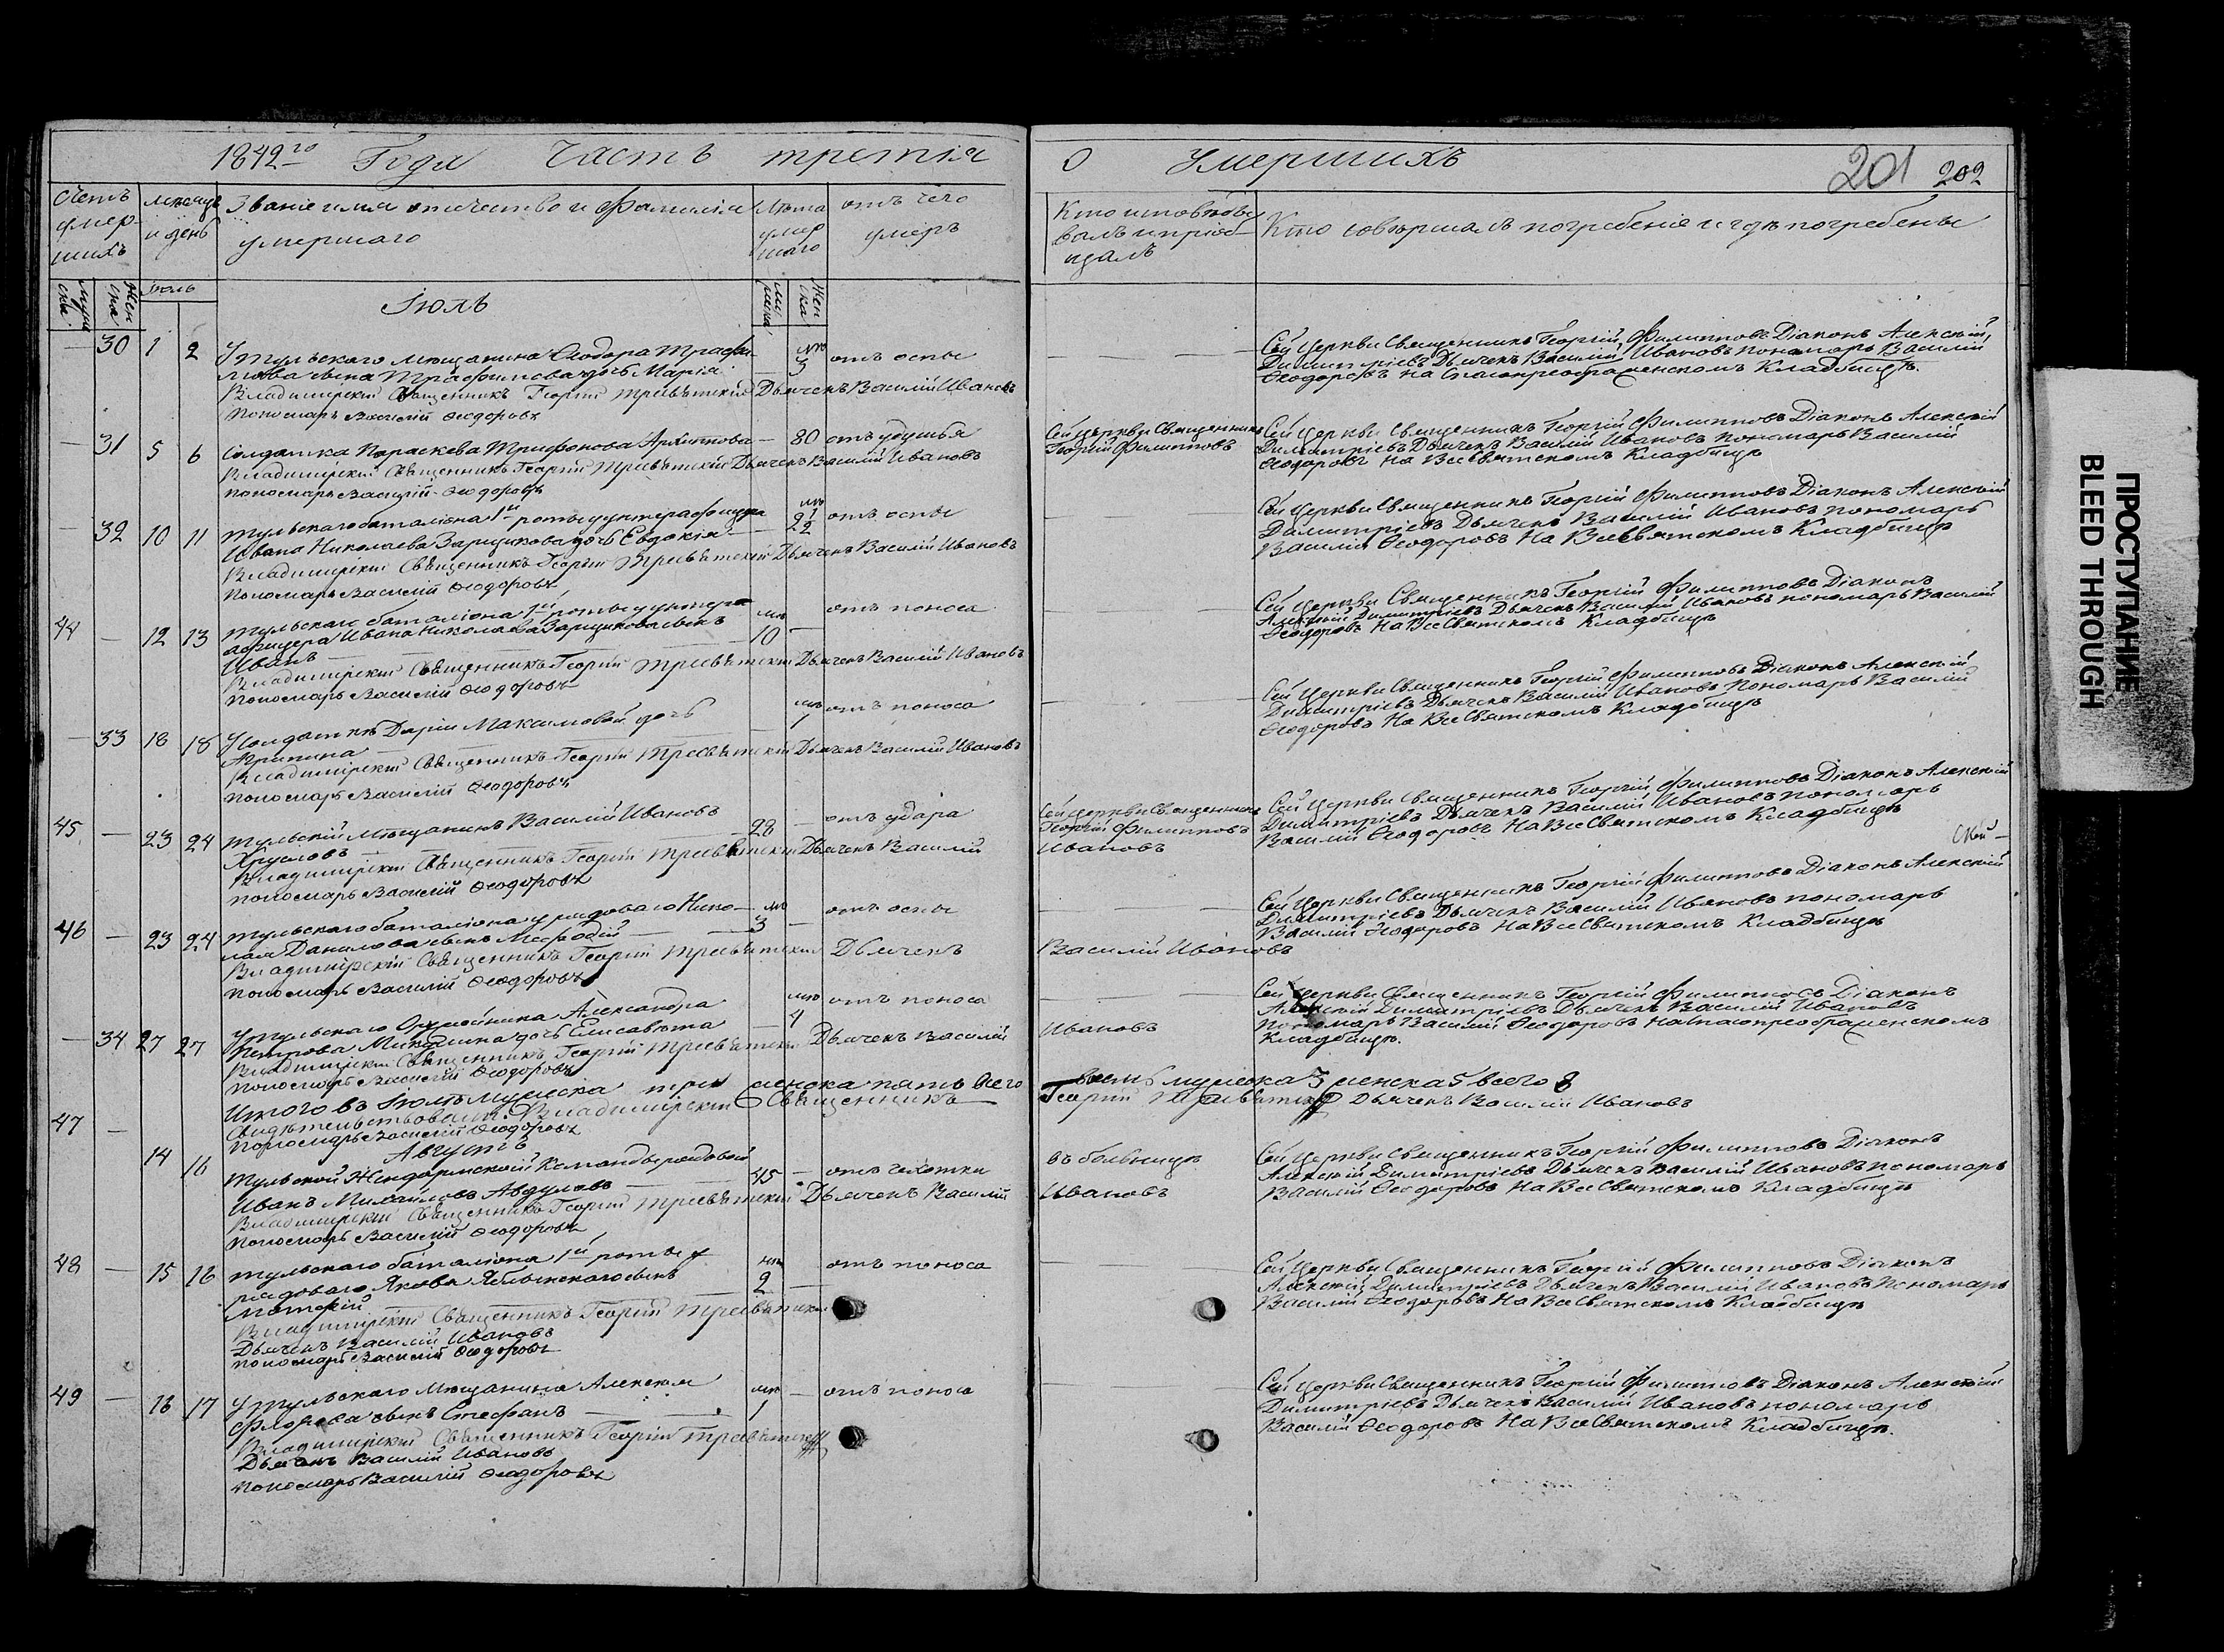 1842го Года Часть третія О Умершихъ 201 202
Счетъ умер- шихъ
мѣсяцъ и день
Званіе имя отечество и Фамилія умершаго
Лѣта умер шаго
отъ чего умеръ
Кто исповѣды валъ и приоб- щалъ
Кто совершалъ погребеніе и гдѣ погребены
муж ска
Жен ска
Іюль
Іюль
Жен ска
30 1 2 У тульскаго мѣщанина Ѳеодора Трофи-
мова сына Трофимова дочь Марія 3 отъ оспы
Владимірскій Священникъ Георгій Тресвятскій Дьячекъ Василій Ивановъ
Пономарь Василій Ѳеодоровъ
Сей Церкви Священникъ Георгій Филипповъ Діаконъ Алексѣй
Димитріевъ Дьячекъ Василій Ивановъ пономарь Василій
Ѳеодоровъ на Спасопреображенскомъ Кладбищѣ.
31 5 6 Солдатка Параскева Трифонова Архипова 80 отъ удушья
Владимірскій Священникъ Георгій Тресвятскій Дьячекъ Василій Ивановъ
пономарь Василій Ѳеодоровъ
Сей Церкви Священникъ
Георгій Филипповъ
Сей Церкви Священникъ Георгій Филипповъ Діаконъ Алексѣй
Димитріевъ Дьячекъ Василій Ивановъ пономарь Василій
Ѳеодоровъ на Всесвятскомъ Кладбищѣ
32 10 11 Тульскаго баталіона 1й роты унтерафицера
Ивана Николаева Зарщикова дочь Евдокія отъ оспы
Владимірскій Священникъ Георгій Тресвятскій Дьячекъ Василій Ивановъ
Пономарь Василій Ѳеодоровъ
Сей Церкви Священникъ Георгій Филипповъ Діаконъ Алексѣй
Димитріевъ Дьячекъ Василій Ивановъ пономарь
Василій Ѳеодоровъ На Всесвятскомъ Кладбищѣ
44 12 13 Тульскаго баталіона 1й роты унтера
афицера Ивана Николаева Зарщикова сынъ
Иванъ 10 отъ поноса
Владимірскій Священникъ Георгій Тресвятскій Дьячекъ Василій Ивановъ
Пономарь Василій Ѳеодоровъ
Сей Церкви Священникъ Георгій Филипповъ Діаконъ
Алексѣй Димитріевъ Дьячекъ Василій Ивановъ пономарь Василій
Ѳеодоровъ На ВсеСвятскомъ Кладбищѣ
33 18 18 У солдатки Даріи Максимовой дочь
Агрипина 1 отъ поноса
Владимірскій Священникъ Георгій Тресвятскій Дьячекъ Василій Ивановъ
пономарь Василій Ѳеодоровъ
Сей Церкви Священникъ Георгій Филипповъ Діаконъ Алексѣй
Димитріевъ Дьячекъ Василій Ивановъ Пономарь Василій
Ѳеодоровъ На ВсеСвятскомъ Кладбищѣ
45 23 24 Тульскій Мѣщанинъ Василій Ивановъ
Хрусловъ 28 отъ удара
Владимірскій Священникъ Георгій Тресвятскій Дьячекъ Василій
пономарь Василій Ѳеодоровъ
Сей Церкви Священникъ
Георгій Филипповъ
Ивановъ
Сей Церкви Священникъ Георгій Филипповъ Діаконъ Алексѣй
Димитріевъ Дьячекъ Василій Ивановъ пономарь
Василій Ѳеодоровъ На ВсеСвятскомъ Кладбищѣ
46 23 24 Тульскаго баталіона у рядоваго Нико-
лая Данилова сынъ Меѳодій 3 отъ оспы
Владимірскій Священникъ Георгій Тресвятскій Дьячекъ
Василій Ивановъ
пономарь Василій Ѳеодоровъ
Сей Церкви Священникъ Георгій Филипповъ Діаконъ Алексѣй
Димитріевъ Дьячекъ Василій Ивановъ пономарь
Василій Ѳеодоровъ На ВсеСвятскомъ Кладбищѣ
34 27 27 У Тульскаго Оружейника Александра
Петрова дочь Елисавета 4 отъ поноса
Владимірскій Священникъ Георгій Тресвятскій Дьячекъ Василій
Ивановъ
пономарь Василій Ѳеодоровъ
Сей Церкви Священникъ Георгій Филипповъ Діаконъ
Алексѣй Димитріевъ Дьячекъ Василій Ивановъ
Пономарь Василій Ѳеодоровъ на Спасопреображенскомъ
Кладбищѣ.
Итого въ Іюлѣ мужеска три женска пять Всего
восмь мужеска 3 женска 5 всего 8
Свидѣтельствовали Владимірскій Священникъ
Георгій Тресвятскій Дьячекъ Василій Ивановъ
Пономарь Василій Ѳеодоровъ
Августъ
47 14 16 Тульской Жендармской Команды рядовой
Иванъ Михайловъ Авдуловъ 45 отъ чехотки
въ больницѣ
Владимірскій Священникъ Георгій Тресвятскій Дьячекъ Василій
Ивановъ
пономарь Василій Ѳеодоровъ
Сей Церкви Священникъ Георгій Филипповъ Діаконъ
Алексѣй Димитріевъ Дьячекъ Василій Ивановъ пономарь
Василій Ѳеодоровъ На ВсеСвятскомъ Кладбищѣ
48 15 16 Тульскаго баталіона 1й роты у
рядоваго Якова сынъ
2 отъ поноса
Владимірскій Священникъ Георгій Тресвятскій
Дьячекъ Василій Ивановъ
пономарь Василій Ѳеодоровъ
Сей Церкви Священникъ Георгій Филипповъ Діаконъ
Алексѣй Димитріевъ Дьячекъ Василій Ивановъ Пономарь
Василій Ѳеодоровъ На ВсеСвятскомъ Кладбищѣ
49 16 17 У Тульскаго Мѣщанина Алексѣя
Флорова сынъ Стефанъ 1 отъ поноса
Владимірскій Священникъ Георгій Тресвятскій
Дьячекъ Василій Ивановъ
пономарь Василій Ѳеодоровъ
Сей Церкви Священникъ Георгій Филипповъ Діаконъ Алексѣй
Димитріевъ Дьячекъ Василій Ивановъ пономарь
Василій Ѳеодоровъ На ВсеСвятскомъ Кладбищѣ.
ПРОСТУПАНИЕ
BLEED THROUGH